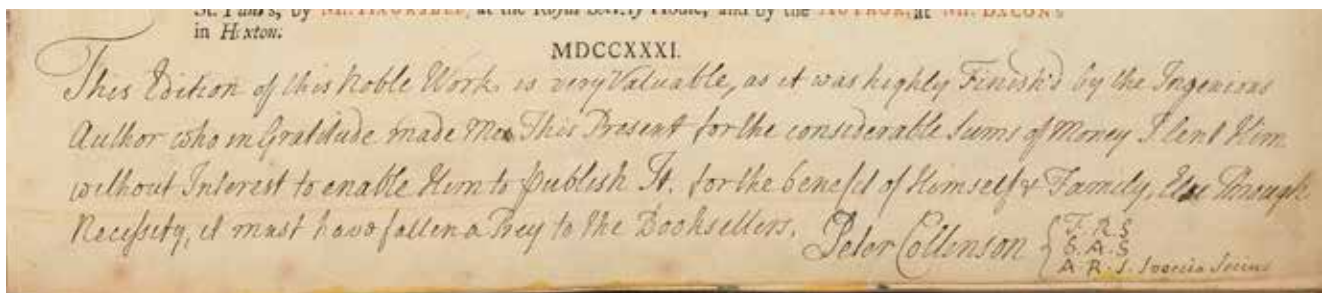 St. Paul's, by Mr. HAUKSBEE, at the Royal Society House; and by the AUTHOR, at Mr. BACON's
in Hoxton.
MDCCXXXI.
This Edition of this Noble Work is very Valuable, as it was highly Finish'd by the Ingenious
Author who in Gratitude made Me This Present for the considerable Sums of Money I lent Him
without Interest to enable Him to publish It. for the benefit of Himself & Family, Else Through
Necessity, it must have fallen a Prey to the Booksellers. Peter Collinson { F. R. S
S. A. S
A R. S. Suecia Socius